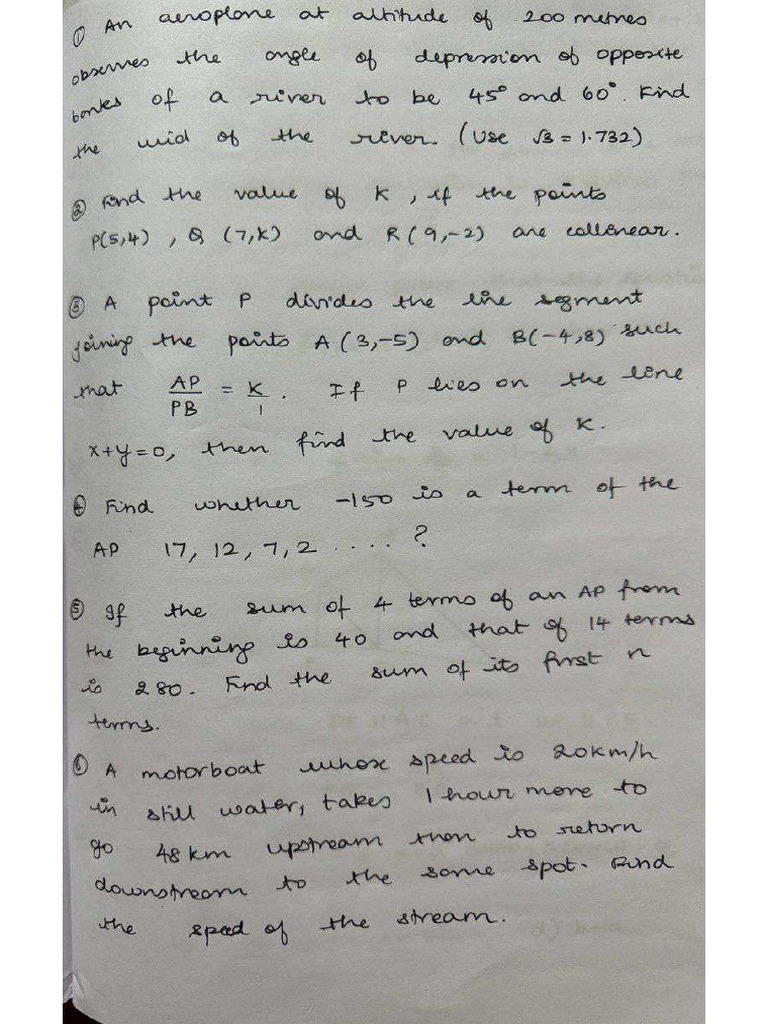 ① An aeroplane at altitude of 200 metres
observes the angle of depression of opposite
banks of a river to be 45° and 60°. Find
the wid of the river. (Use √3 = 1.732)
② Find the value of K, if the points
P(5,4), Q (7,K) and R(9,-2) are collinear.
③ A point P divides the line segment
joining the points A(3,-5) and B(-4,8) such
that AP/PB = K/1. If P lies on the line
x+y=0, then find the value of K.
④ Find whether -150 is a term of the
AP 17, 12, 7, 2 ....?
⑤ If the sum of 4 terms of an AP from
the beginning is 40 and that of 14 terms
is 280. Find the sum of its first n
terms.
⑥ A motorboat whose speed is 20km/h
in still water, takes 1 hour more to
go 48km upstream then to return
downstream to the same spot. Find
the speed of the stream.